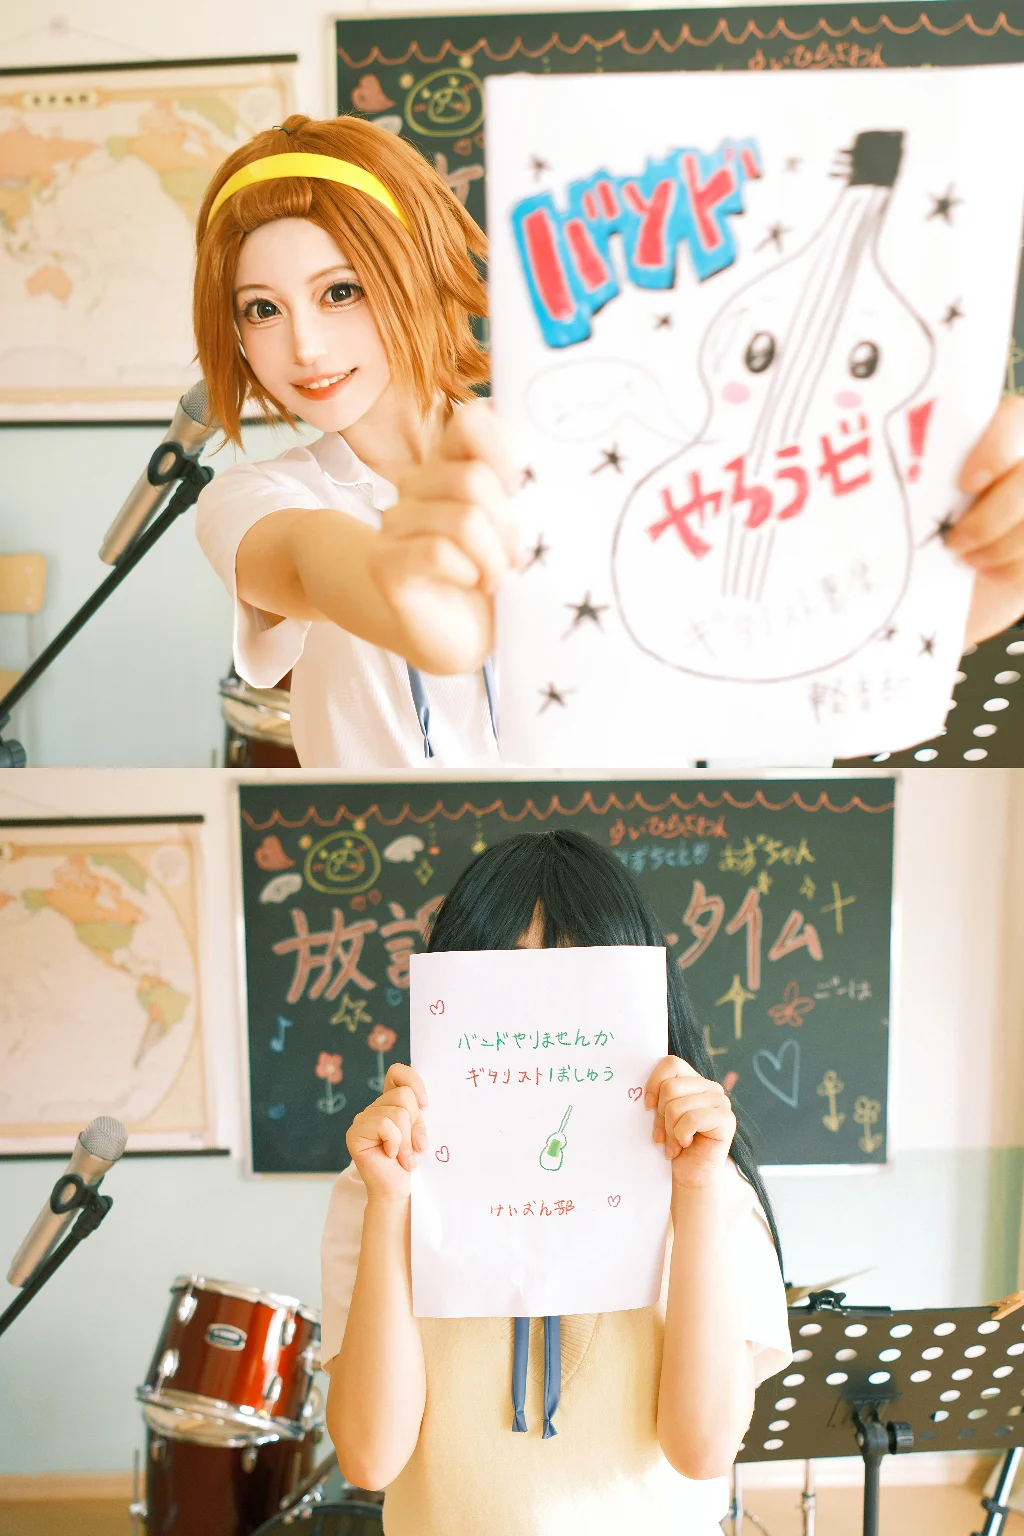 バンド
やろうゼ!
ギタリスト募集
軽音部
ゆい ひらさわん
あずちゃん
放課
タイム
ごーは
バンドやりませんか
ギタリストぼしゅう
けいおん部